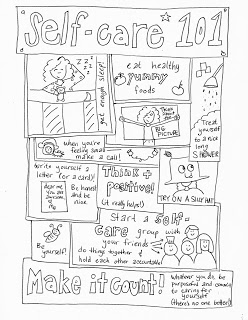 Self-care 101
ZZZZ
get enough sleep!
eat healthy
yummy
foods
Think
about
the
BIG
PICTURE
Treat
yourself
to a nice
long
SHOWER
when you're
feeling small
make a call!
Write yourself a
letter (or a card!)
dear me
you are
awesome.
Be honest
and be
nice
Think +
positive!
(it really helps!)
TRY ON A SILLY HAT
Start a Self-
Care group with
your friends
do things together &
hold each other accountable
Be
yourself!
Make it count!
Whatever you do, be
purposeful and commit
to caring for
yourself
(there's no one better!)